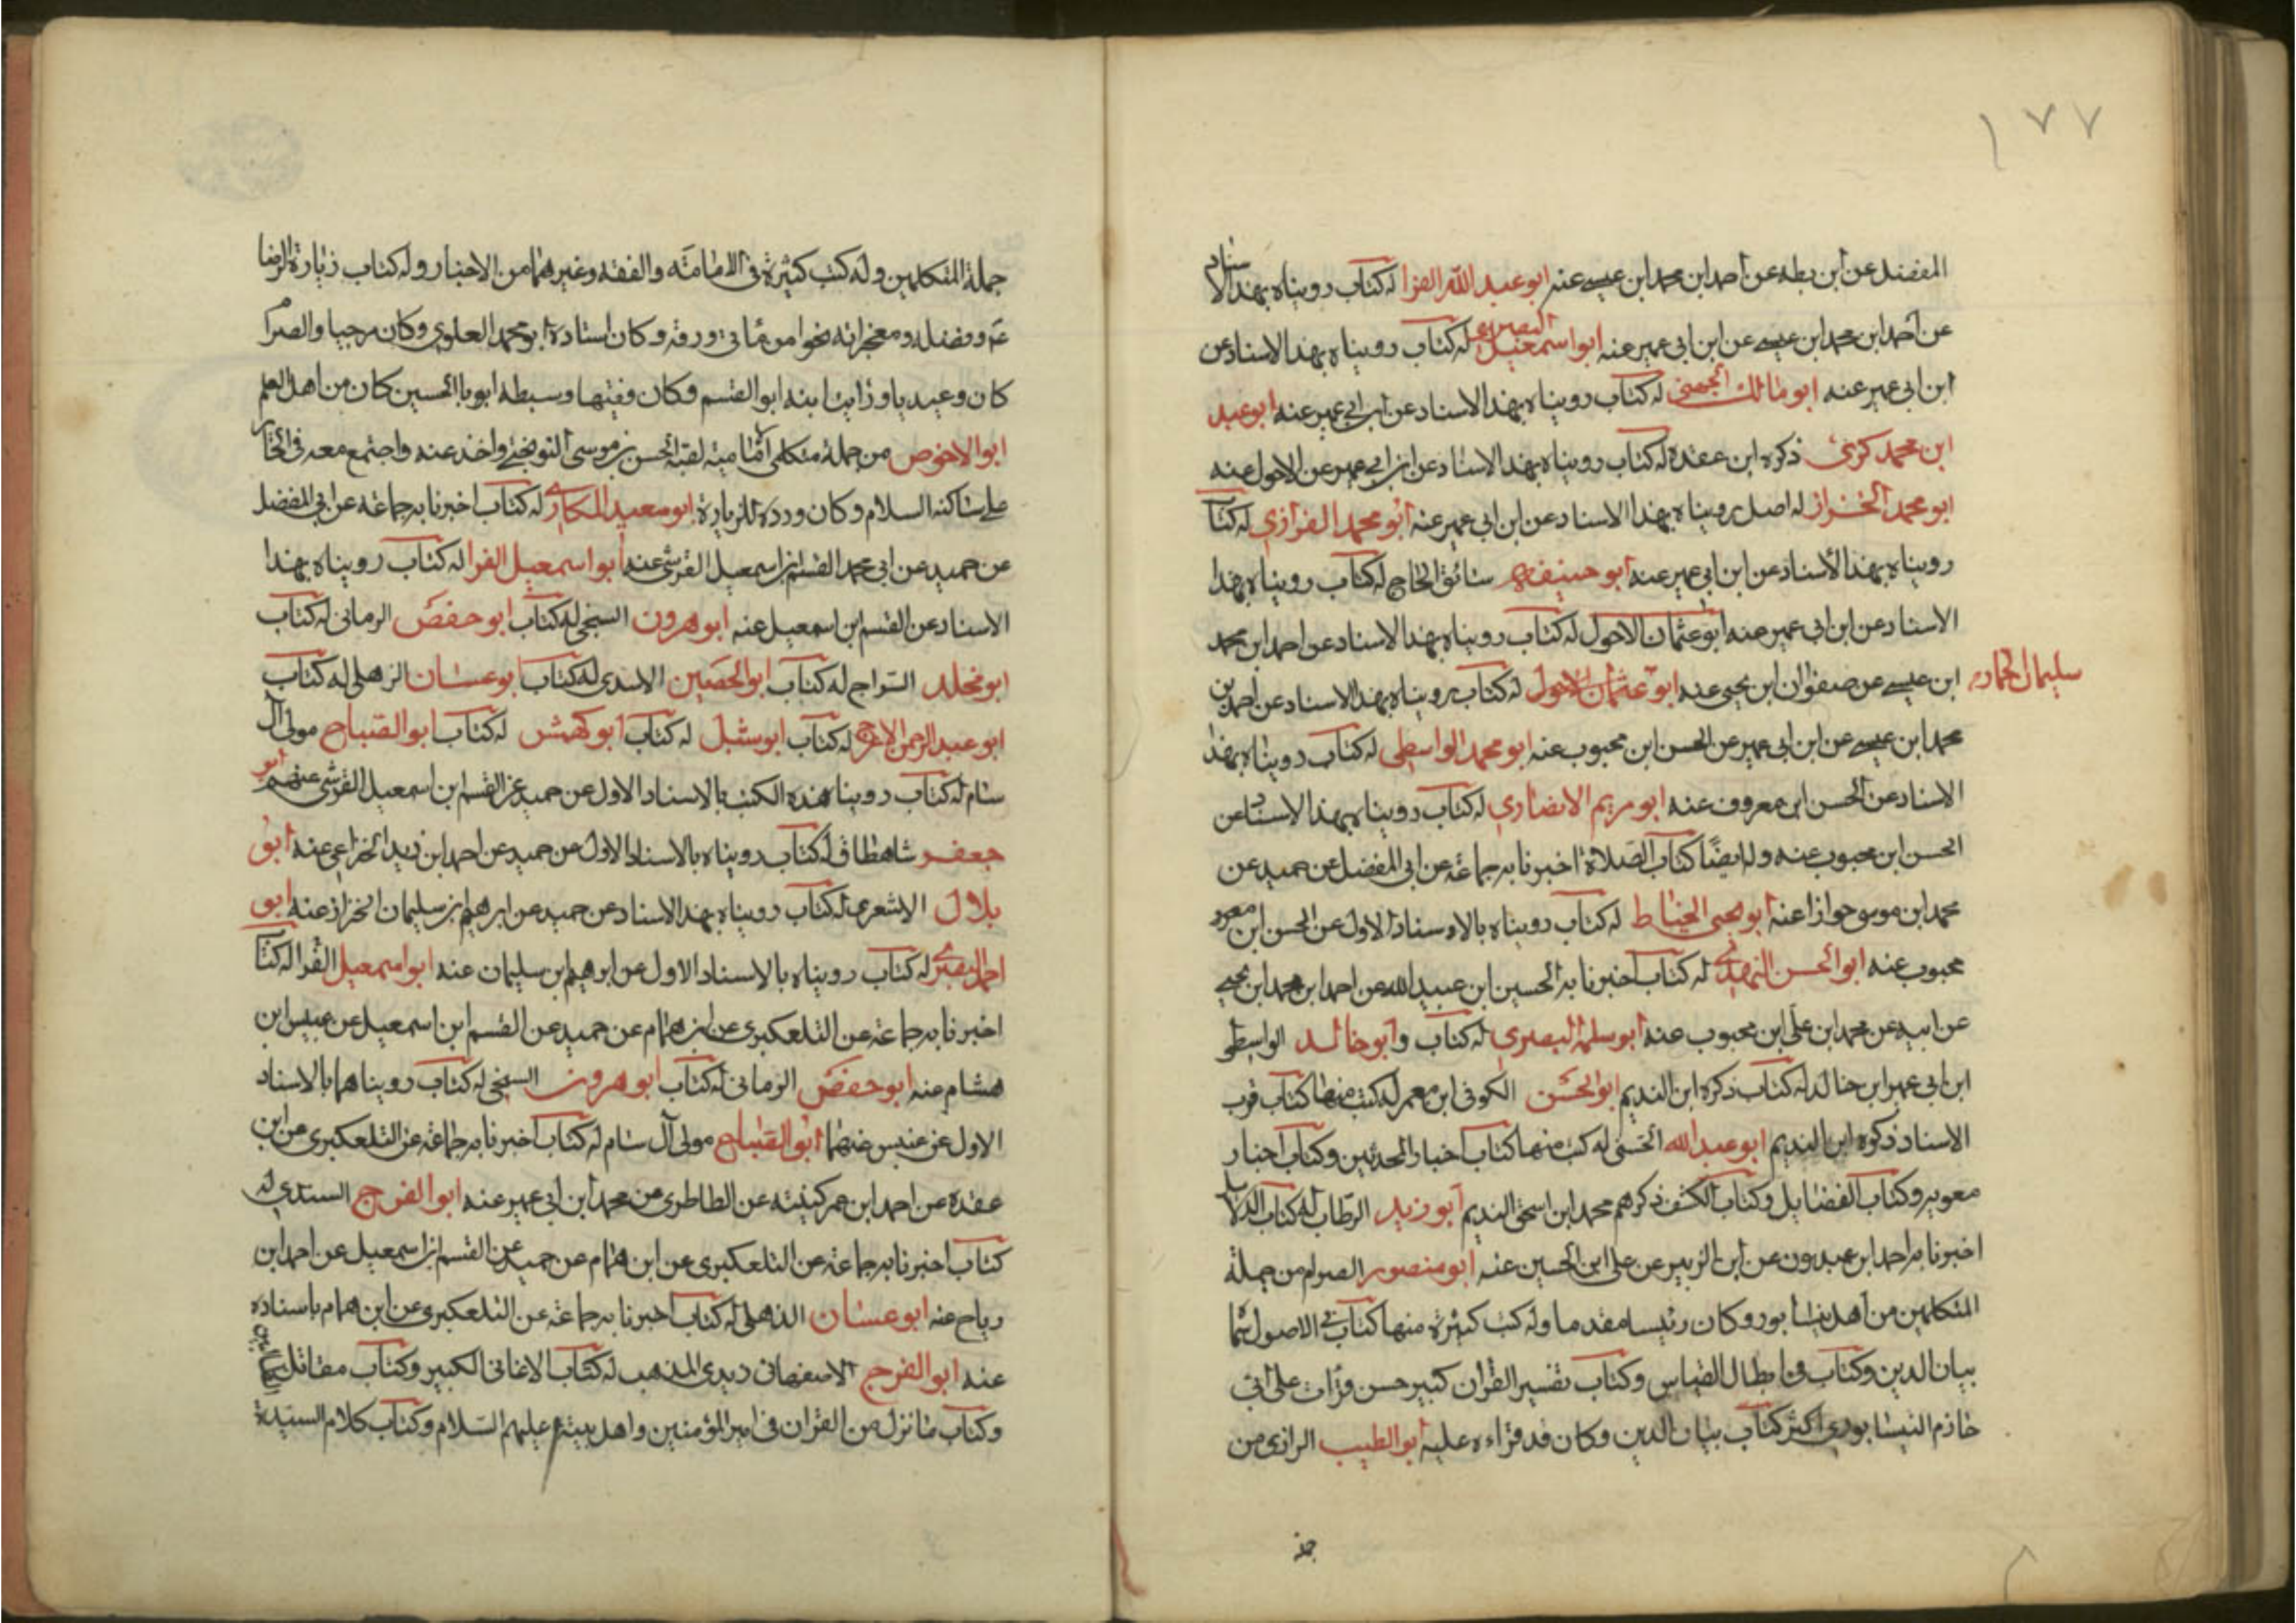 ١٧٧
المفضل عن ابن بطه عن احمد ابن محمد ابن عيسى عنه ابو عبد الله الفرا له كتاب رويناه بهذا الاسناد
عن احمد ابن محمد ابن عيسى عن ابن ابى عمير عنه ابو اسمعيل البصرى له كتاب رويناه بهذا الاسناد عن
ابن ابى عمير عنه ابو مالك الجهنى له كتاب رويناه بهذا الاسناد عن ابن ابى عمير عنه ابو عبد
ابن محمد كرى ذكره ابن عقده له كتاب رويناه بهذا الاسناد عن ابن ابى عمير عن الاحول عنه
ابو محمد الخزاز له اصل رويناه بهذا الاسناد عن ابن ابى عمير عنه ابو محمد الفزازي له كتا
رويناه بهذا الأسناد عن ابن ابى عمير عنه ابو حنيفه سائق الحاج له كتاب رويناه بهذا
الاسناد عن ابن ابى عمير عنه ابو عثمان الاحول له كتاب رويناه بهذا الاسناد عن احمد ابن محمد
ابن عيسى عن صفوان ابن يحيى عنه ابو عثمان الاحول له كتاب رويناه بهذا الاسناد عن احمد بن
سليمان الحمار
محمد ابن عيسى عن ابن ابى عمير عن الحسن ابن محبوب عنه ابو محمد الواسطى له كتاب رويناه بهذا
الاسناد عن الحسن ابن معروف عنه ابو مريم الانصاري له كتاب رويناه بهذا الاسناد عن
الحسن ابن محبوب عنه وله ايضًا كتاب الصلاة اخبرنا به جماعة عن ابى المفضل عن حميد عن
محمد ابن موسى حوازا عنه ابو يحيى الحناط له كتاب رويناه بالاوسناد الاول عن الحسن ابن
محبوب عنه ابو الحسن النهدى له كتاب اخبرنا به الحسين ابن عبيد الله عن احمد ابن محمد ابن يحيى
عن ابيه عن محمد ابن على ابن محبوب عنه ابو سلمة البصرى له كتاب وابو خالد الواسطى
ابن ابى عمير ابن خالد له كتاب ذكره ابن النديم ابو الحسن الكوفى ابن معمر له كتب منها كتاب قرب
الاسناد ذكره ابن النديم ابو عبد الله الحسنى له كتب منها كتاب اخبار المحدثين وكتاب اخبار
معويه وكتاب الفضايل وكتاب الكشف ذكرهم محمد ابن اسحق النديم ابو زيد الرطاب له كتاب الدلا
اخبرنا به احمد ابن عبدون عن ابن الزبير عن على ابن الحسين عنه ابو منصور الصرام من جملة
المتكلمين من اهل نيشابور وكان رئيسا مقدما وله كتب كثيرة منها كتاب فى الاصول سماه
بيان الدين وكتاب فى ابطال القياس وكتاب تفسير القرآن كبير حسن قرات على ابى
حازم النيشابورى اكثر كتاب بيان الدين وكان قد قراءه عليه ابو الطيب الرازى من
جملة المتكلمين وله كتب كثيرة فى الامامة والفقه وغيرهما من الاخبار وله كتاب زيارة الرضا
ع وفضله ومعجزاته نحوا من مأتى ورقة وكان استاده ابو محمد العلوى وكان مرجيا والصرام
كان وعيديا ورايت ابنه ابو القسم وكان فقيها وسبطه ابو با الحسين كان من اهل العلم
ابو الاخوص من جملة متكلمى امامية لقيه الحسن بن موسى النوبختى واخذ عنه واجتمع معه فى الحا
على ساكنه السلام وكان ورده للزيارة ابو سعيد المكارى له كتاب اخبرنا به جماعة عن ابى المفضل
عن حميد عن ابى محمد القسم ابن اسمعيل القرشى عنه ابو اسمعيل الفرا له كتاب رويناه بهذا
الاسناد عن القسم ابن اسمعيل عنه ابو هرون السنجى له كتاب ابو حفص الرمانى له كتاب
ابو مخلد السراج له كتاب ابو الحصين الاسدى له كتاب ابو غسان الذهلى له كتاب
ابو عبد الرحمن الاعرج له كتاب ابو شبل له كتاب ابو كهمش له كتاب ابو الصباح مولى آل
سام له كتاب رويناهذه الكتب بالاسناد الاول عن حميد عن القسم ابن اسمعيل القرشى عنهم ابو
جعفر شاه طاق له كتاب رويناه بالاسناد الاول عن حميد عن احمد ابن زيد الخزاعى عنه ابو
بلال الاشعرى له كتاب رويناه بهذا الاسناد عن حميد عن ابرهيم ابن سليمان الخزاز عنه ابو
احمد البصرى له كتاب رويناه بالاسناد الاول عن ابرهيم ابن سليمان عنه ابو اسمعيل الفرا له كتا
اخبرنا به جماعة عن التلعكبرى عن ابن همام عن حميد عن القسم ابن اسمعيل عن عبيس ابن
هشام عنه ابو حفص الرمانى له كتاب ابو هرون السنجى له كتاب رويناهما بالاسناد
الاول عن عنبس عنهما ابو الصباح مولى آل سام له كتاب اخبرنا به جماعة عن التلعكبرى عن ابن
عقدة عن احمد ابن عمر كيسة عن الطاطرى عن محمد ابن ابى عمير عنه ابو الفرج السندى له
كتاب اخبرنا به جماعة عن التلعكبرى عن ابن همام عن حميد عن القسم ابن اسمعيل عن احمد ابن
رباح عنه ابو غسان الذهلى له كتاب اخبرنا به جماعة عن التلعكبرى عن ابن همام باسناده
عنه ابو الفرج الاصفهانى زيدى المذهب له كتاب الاغانى الكبير وكتاب مقاتل
وكتاب ما نزل من القران فى امير المؤمنين واهل بيته عليهم السلام وكتاب كلام السيدة